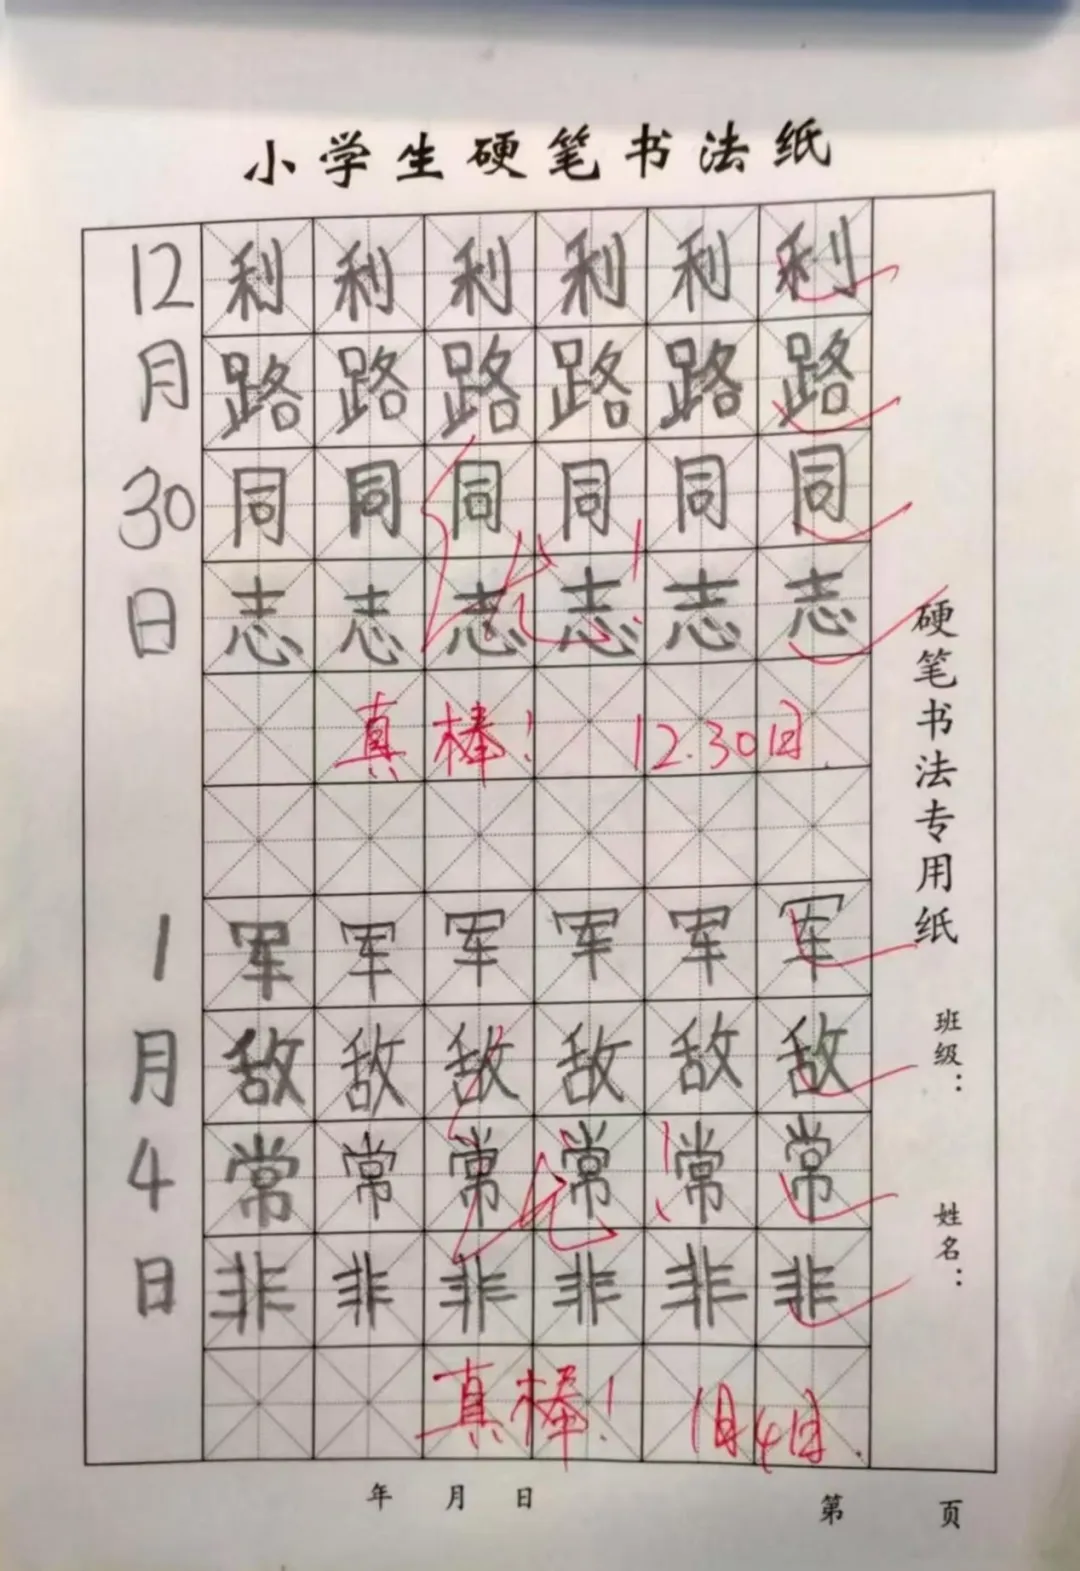 小学生硬笔书法纸
12月30日
利利利利利利
路路路路路路
同同同同同同
志志志志志志
真棒! 12.30日
1月4日
军军军军军军
敌敌敌敌敌敌
常常常常常常
非非非非非非
真棒! 1月4日
硬笔书法专用纸
班级:
姓名:
年 月 日
第 页